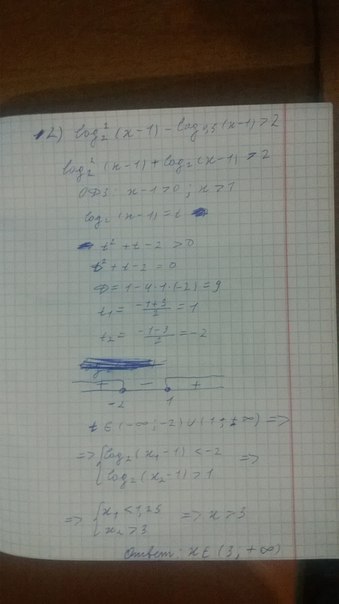 2) log₂²(x-1) - log₀,₅(x-1) > 2
log₂²(x-1) + log₂(x-1) > 2
ОДЗ: x-1>0; x>1
log₂(x-1) = t
t² + t - 2 > 0
t² + t - 2 = 0
D = 1 - 4·1·(-2) = 9
t₁ = (-1+3)/2 = 1
t₂ = (-1-3)/2 = -2
+ - +
-2 1
t ∈ (-∞; -2) ∪ (1; +∞) =>
=> { log₂(x₁-1) < -2
log₂(x₂-1) > 1 =>
=> { x₁ < 1,25
x₂ > 3 => x > 3
Ответ: x ∈ (3; +∞)